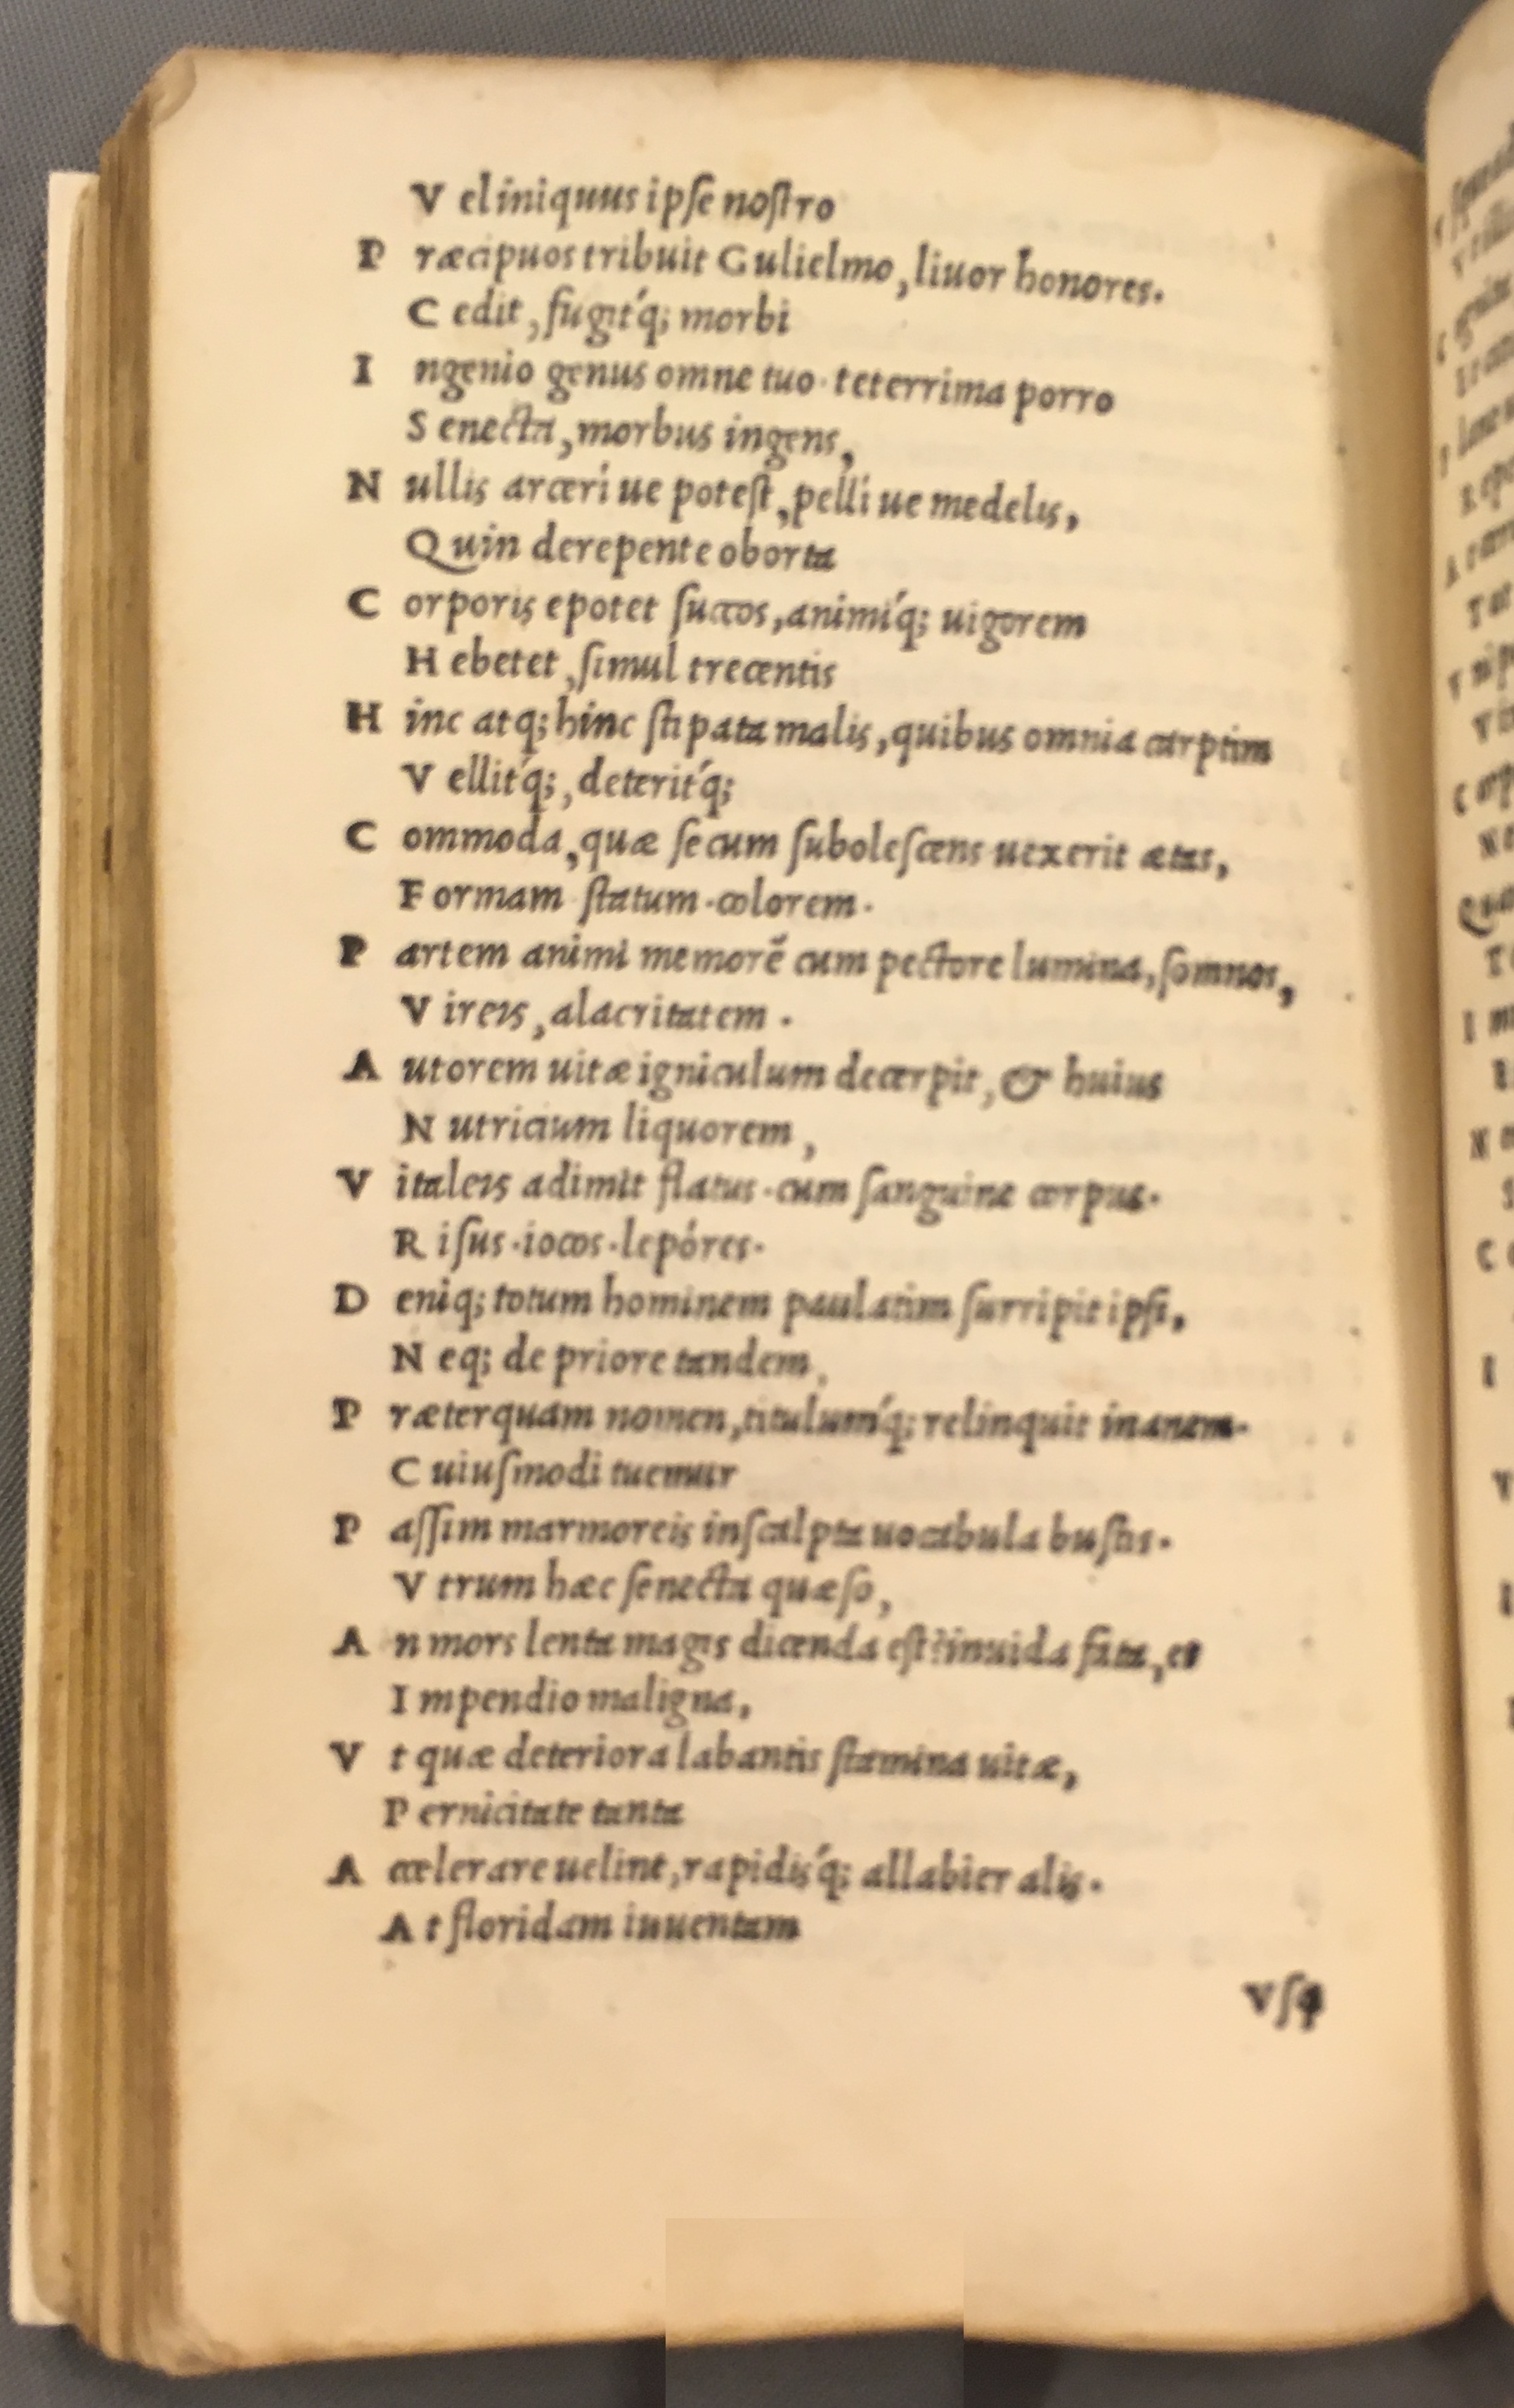 V el iniquus ipſe noſtro
P ræcipuos tribuit Gulielmo, liuor honores.
C edit, fugit´q; morbi
I ngenio genus omne tuo· teterrima porro
S enecta, morbus ingens,
N ullis arceri ue poteſt, pelli ue medelis,
Q uin derepente oborta
C orporis epotet ſuccos, animi´q; uigorem
H ebetet, ſimul trecentis
H inc atq; hinc ſtipata malis, quibus omnia carptim
V ellit´q;, deterit´q;
C ommoda, quæ ſecum ſuboleſcens uexerit ætas,
F ormam ſtatum·colorem·
P artem animi memorē cum pectore lumina, ſomnos,
V ireis, alacritatem·
A utorem uitæ igniculum decerpit, & huius
N utricium liquorem,
V italeis adimit flatus·cum ſanguine corpus·
R iſus·iocos·lepóres·
D eniq; totum hominem paulatim ſurripit ipſi,
N eq; de priore tandem,
P ræterquam nomen, titulum´q; relinquit inanem·
C uiuſmodi tuemur
P aſſim marmoreis inſcalpta uocabula buſtis·
V trum hæc ſenecta quæſo,
A n mors lenta magis dicenda eſt? inuida fata, et
I mpendio maligna,
V t quæ deteriora labantis ſtamina uitæ,
P ernicitate tanta
A ccelerare uelint, rapidis´q; allabier alis·
A t floridam iuuentam
V ſq